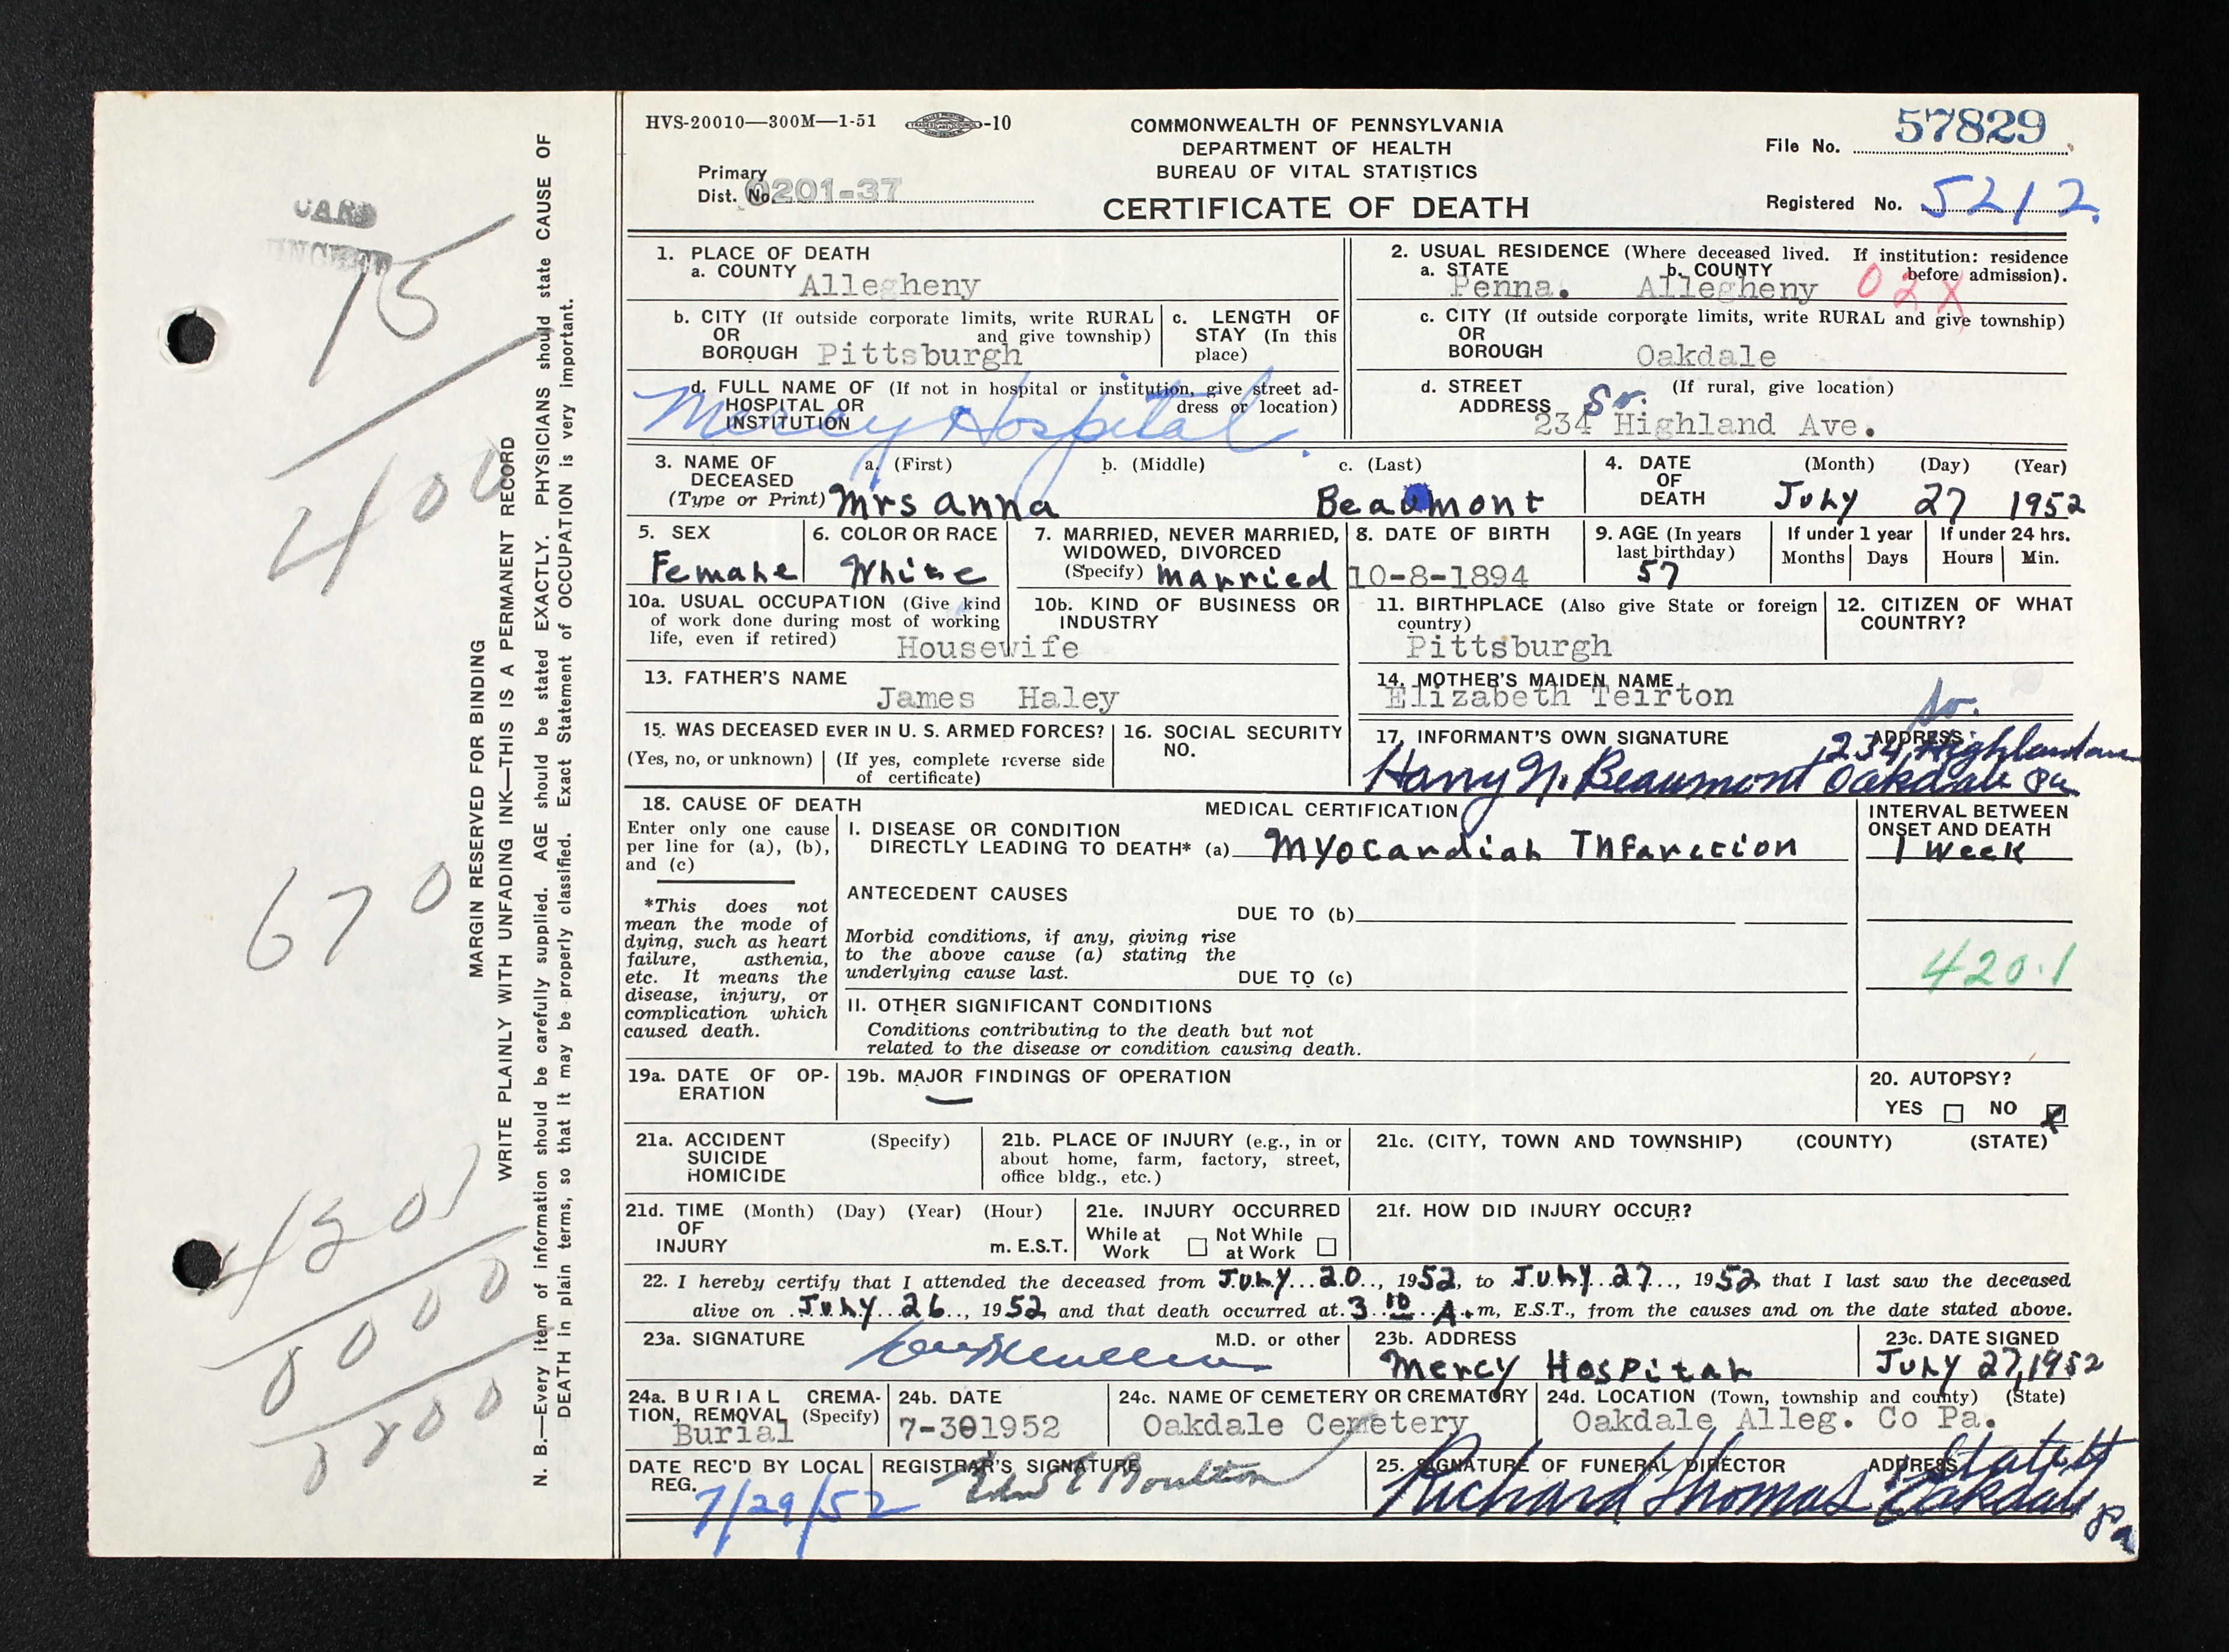 HVS-20010—300M—1-51 -10
COMMONWEALTH OF PENNSYLVANIA
DEPARTMENT OF HEALTH
BUREAU OF VITAL STATISTICS
CERTIFICATE OF DEATH
File No. 57829
Primary
Dist. No. 0201-37
Registered No. 5212.
1. PLACE OF DEATH
a. COUNTY Allegheny
b. CITY (If outside corporate limits, write RURAL
OR and give township)
BOROUGH Pittsburgh
c. LENGTH OF
STAY (In this
place)
d. FULL NAME OF (If not in hospital or institution, give street ad-
HOSPITAL OR dress or location)
INSTITUTION
Mercy Hospital.
2. USUAL RESIDENCE (Where deceased lived. If institution: residence
before admission).
a. STATE b. COUNTY
Penna. Allegheny 02X
c. CITY (If outside corporate limits, write RURAL and give township)
OR
BOROUGH Oakdale
d. STREET (If rural, give location)
ADDRESS So.
234 Highland Ave.
3. NAME OF a. (First) b. (Middle) c. (Last)
DECEASED
(Type or Print) Mrs Anna Beaumont
4. DATE (Month) (Day) (Year)
OF
DEATH July 27 1952
5. SEX
Female
6. COLOR OR RACE
White
7. MARRIED, NEVER MARRIED,
WIDOWED, DIVORCED
(Specify) Married
8. DATE OF BIRTH
10-8-1894
9. AGE (In years
last birthday)
57
If under 1 year
Months Days
If under 24 hrs.
Hours Min.
10a. USUAL OCCUPATION (Give kind
of work done during most of working
life, even if retired) Housewife
10b. KIND OF BUSINESS OR
INDUSTRY
11. BIRTHPLACE (Also give State or foreign
country)
Pittsburgh
12. CITIZEN OF WHAT
COUNTRY?
13. FATHER'S NAME
James Haley
14. MOTHER'S MAIDEN NAME
Elizabeth Teirton
15. WAS DECEASED EVER IN U. S. ARMED FORCES?
(Yes, no, or unknown) (If yes, complete reverse side
of certificate)
16. SOCIAL SECURITY
NO.
17. INFORMANT'S OWN SIGNATURE ADDRESS
So.
234 Highland ave
Harry N. Beaumont Oakdale Pa
18. CAUSE OF DEATH
Enter only one cause
per line for (a), (b),
and (c)
*This does not
mean the mode of
dying, such as heart
failure, asthenia,
etc. It means the
disease, injury, or
complication which
caused death.
MEDICAL CERTIFICATION
I. DISEASE OR CONDITION
DIRECTLY LEADING TO DEATH* (a) Myocardial Infarction
ANTECEDENT CAUSES
DUE TO (b)
Morbid conditions, if any, giving rise
to the above cause (a) stating the
underlying cause last.
DUE TO (c)
II. OTHER SIGNIFICANT CONDITIONS
Conditions contributing to the death but not
related to the disease or condition causing death.
INTERVAL BETWEEN
ONSET AND DEATH
1 Week
420.1
19a. DATE OF OP-
ERATION
19b. MAJOR FINDINGS OF OPERATION
—
20. AUTOPSY?
YES NO X
21a. ACCIDENT (Specify)
SUICIDE
HOMICIDE
21b. PLACE OF INJURY (e.g., in or
about home, farm, factory, street,
office bldg., etc.)
21c. (CITY, TOWN AND TOWNSHIP) (COUNTY) (STATE)
21d. TIME (Month) (Day) (Year) (Hour)
OF
INJURY m. E.S.T.
21e. INJURY OCCURRED
While at Not While
Work at Work
21f. HOW DID INJURY OCCUR?
22. I hereby certify that I attended the deceased from July 20, 1952, to July 27, 1952 that I last saw the deceased
alive on July 26, 1952 and that death occurred at 3 10 A.m, E.S.T., from the causes and on the date stated above.
23a. SIGNATURE M.D. or other
23b. ADDRESS
Mercy Hospital
23c. DATE SIGNED
July 27, 1952
24a. BURIAL CREMA-
TION, REMOVAL (Specify)
Burial
24b. DATE
7-301952
24c. NAME OF CEMETERY OR CREMATORY
Oakdale Cemetery
24d. LOCATION (Town, township and county) (State)
Oakdale Alleg. Co Pa.
DATE REC'D BY LOCAL
REG.
7/29/52
REGISTRAR'S SIGNATURE
Moulton
25. SIGNATURE OF FUNERAL DIRECTOR ADDRESS
State St
Richard Thomas Oakdale
Pa
MARGIN RESERVED FOR BINDING
WRITE PLAINLY WITH UNFADING INK—THIS IS A PERMANENT RECORD
N. B.—Every item of information should be carefully supplied. AGE should be stated EXACTLY. PHYSICIANS should state CAUSE OF
DEATH in plain terms, so that it may be properly classified. Exact Statement of OCCUPATION is very important.
CARD
15
400
670
4201
0000